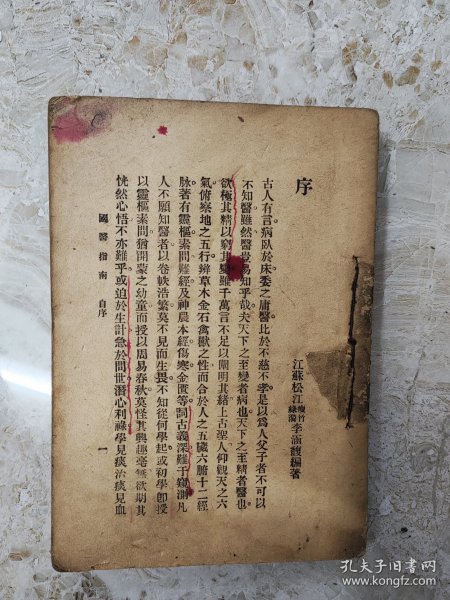 序
江蘇松江 瘦竹 綠漪 李涵馥編著
古人有言病臥於床委之庸醫比於不慈不孝是以爲人父子者不可以
不知醫雖然醫豈易知乎哉夫天下之至變者病也天下之至精者醫也
欲極其精以窮其變雖千萬言不足以闡明其緒上古聖人仰觀天之六
氣俯察地之五行辨草木金石禽獸之性而合於人之五臟六腑十二經
脉著有靈樞素問難經及神農本經傷寒金匱等詞古義深難于窺測凡
人不願知醫者以卷軼浩繁莫不見而生畏不知從何學起或初學卽授
以靈樞素問猶開蒙之幼童而授以周易春秋莫怪其興趣毫無欲期其
恍然心悟不亦難乎或迫於生計急於問世潛心利祿學見痰治痰見血
國醫指南 自序 一
孔夫子旧书网
www.kongfz.com